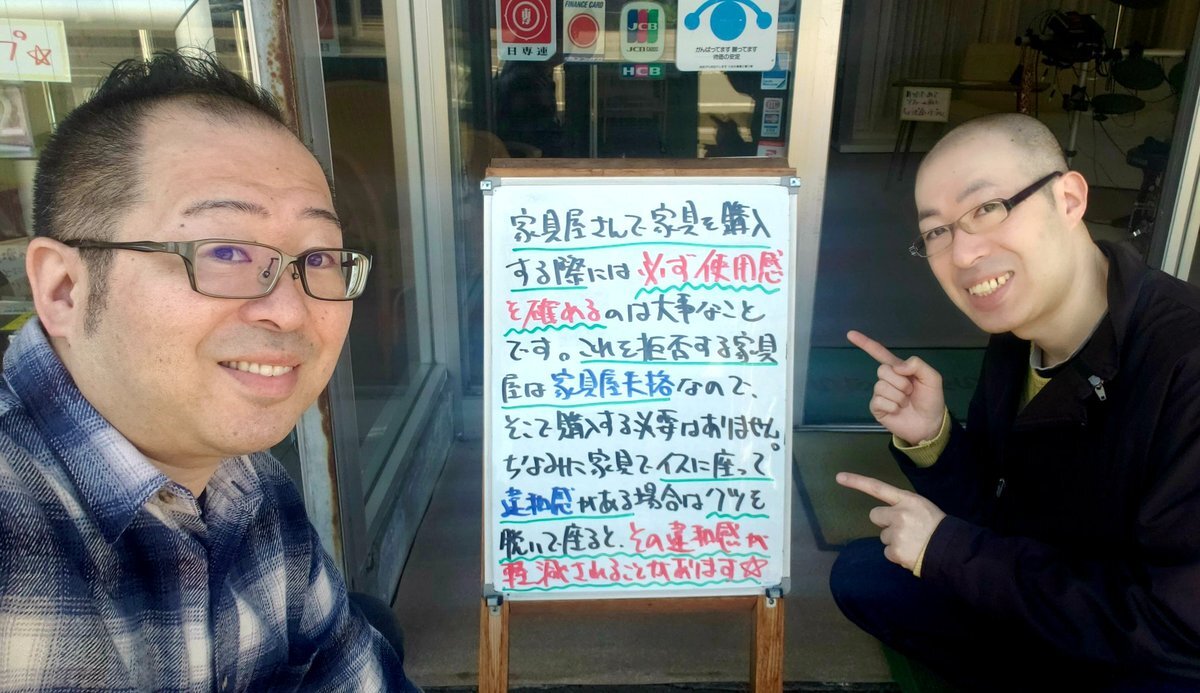 プ☆
日専連
FINANCE CARD
JCB
JCB CARD
HCB
がんばってます 勝ってます
家具屋さんで家具を購入
する際には必ず使用感
を確めるのは大事なこと
です。これを拒否する家具
屋は家具屋失格なので、
そこで購入する必要はありません。
ちなみに家具でイスに座って
違和感がある場合はクツを
脱いで座ると、その違和感が
軽減されることがあります☆